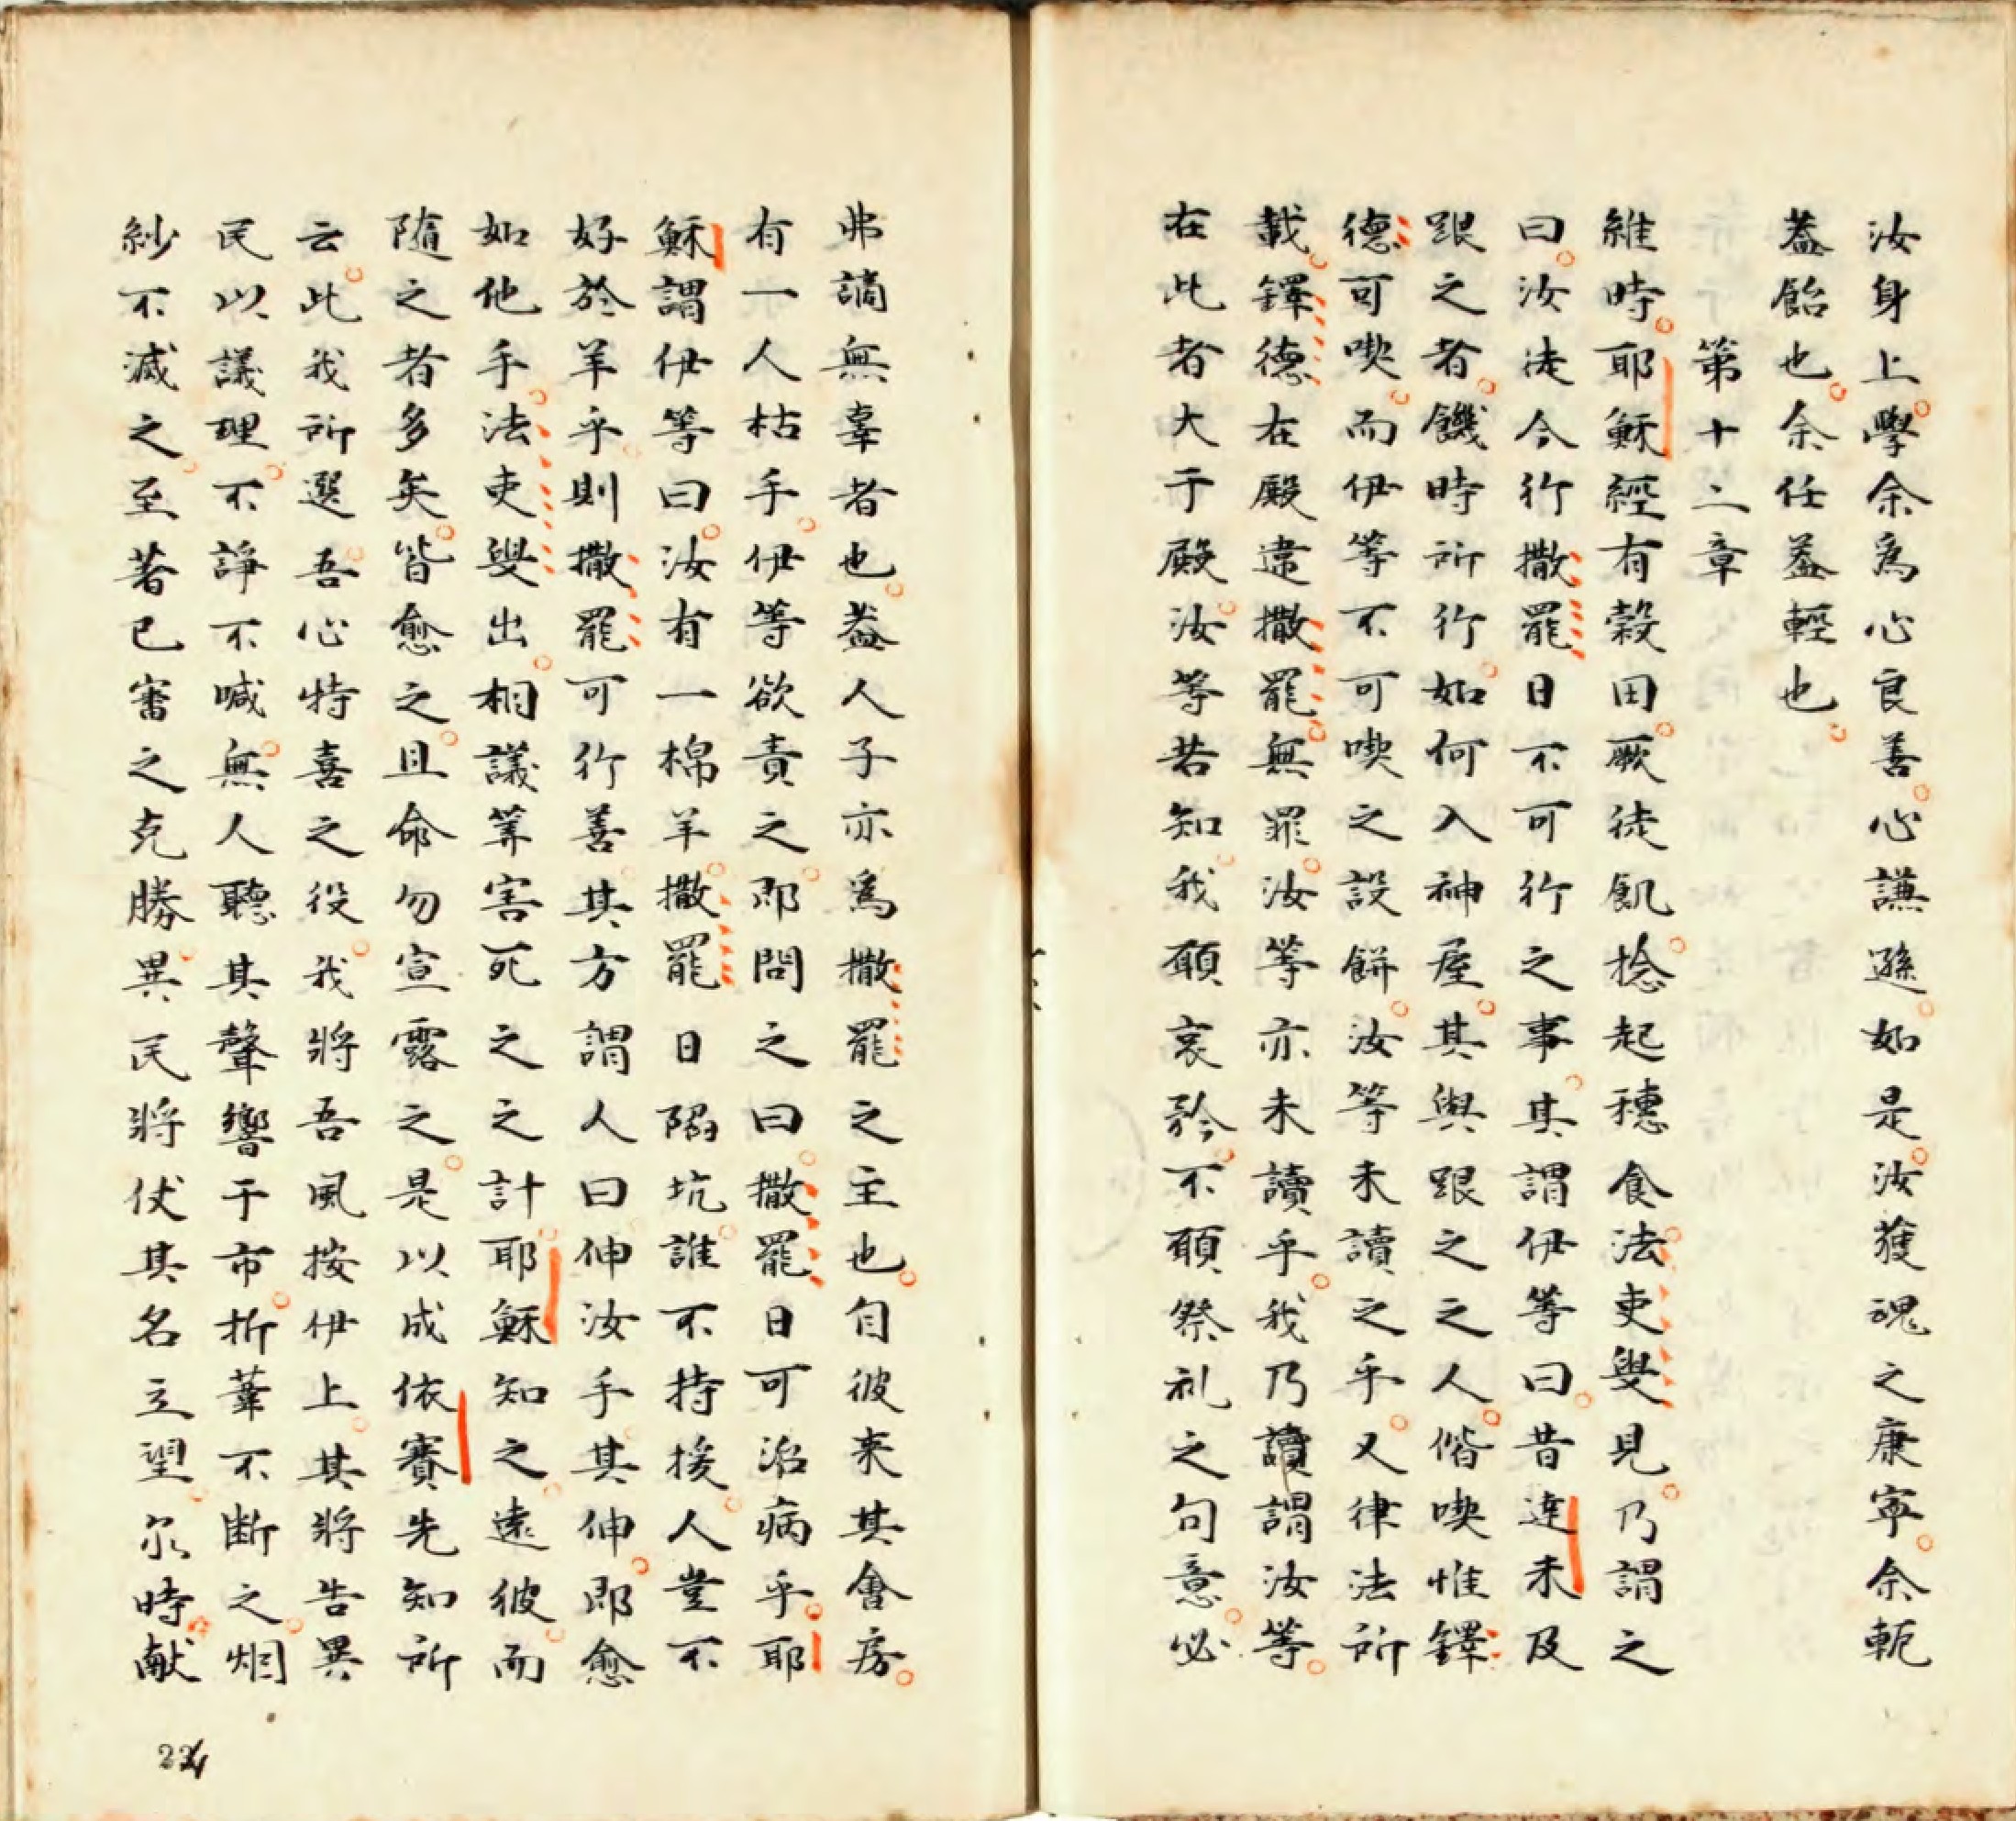 汝身上學余爲心良善心謙遜如是汝獲魂之康寧余軛
葢飴也余任葢輕也
第十二章
維時耶穌經有穀田厥徒飢捻起穗食法吏叟見乃謂之
曰汝徒今行撒罷日不可行之事其謂伊等曰昔達未及
跟之者饑時所行如何入神屋其與跟之之人偕喫惟鐸
德可喫而伊等不可喫之設餅汝等未讀之乎又律法所
載鐸德在殿違撒罷無罪汝等亦未讀乎我乃讀謂汝等
在此者大于殿汝等若知我願哀矜不願祭礼之句意必
弗謫無辜者也葢人子亦爲撒罷之主也自彼来其會房
有一人枯手伊等欲責之即問之曰撒罷日可治病乎耶
穌謂伊等曰汝有一棉羊撒罷日陷坑誰不持援人豈不
好於羊乎則撒罷可行善其方謂人曰伸汝手其伸即愈
如他手法吏叟出相議筭害死之之計耶穌知之遠彼而
隨之者多矣皆愈之且命勿宣露之是以成依賽先知所
云此我所選吾心特喜之役我將吾風按伊上其將告異
民以議理不諍不喊無人聽其聲響于市折葦不断之烟
紗不滅之至著已審之克勝異民將伏其名立望尔時献
224